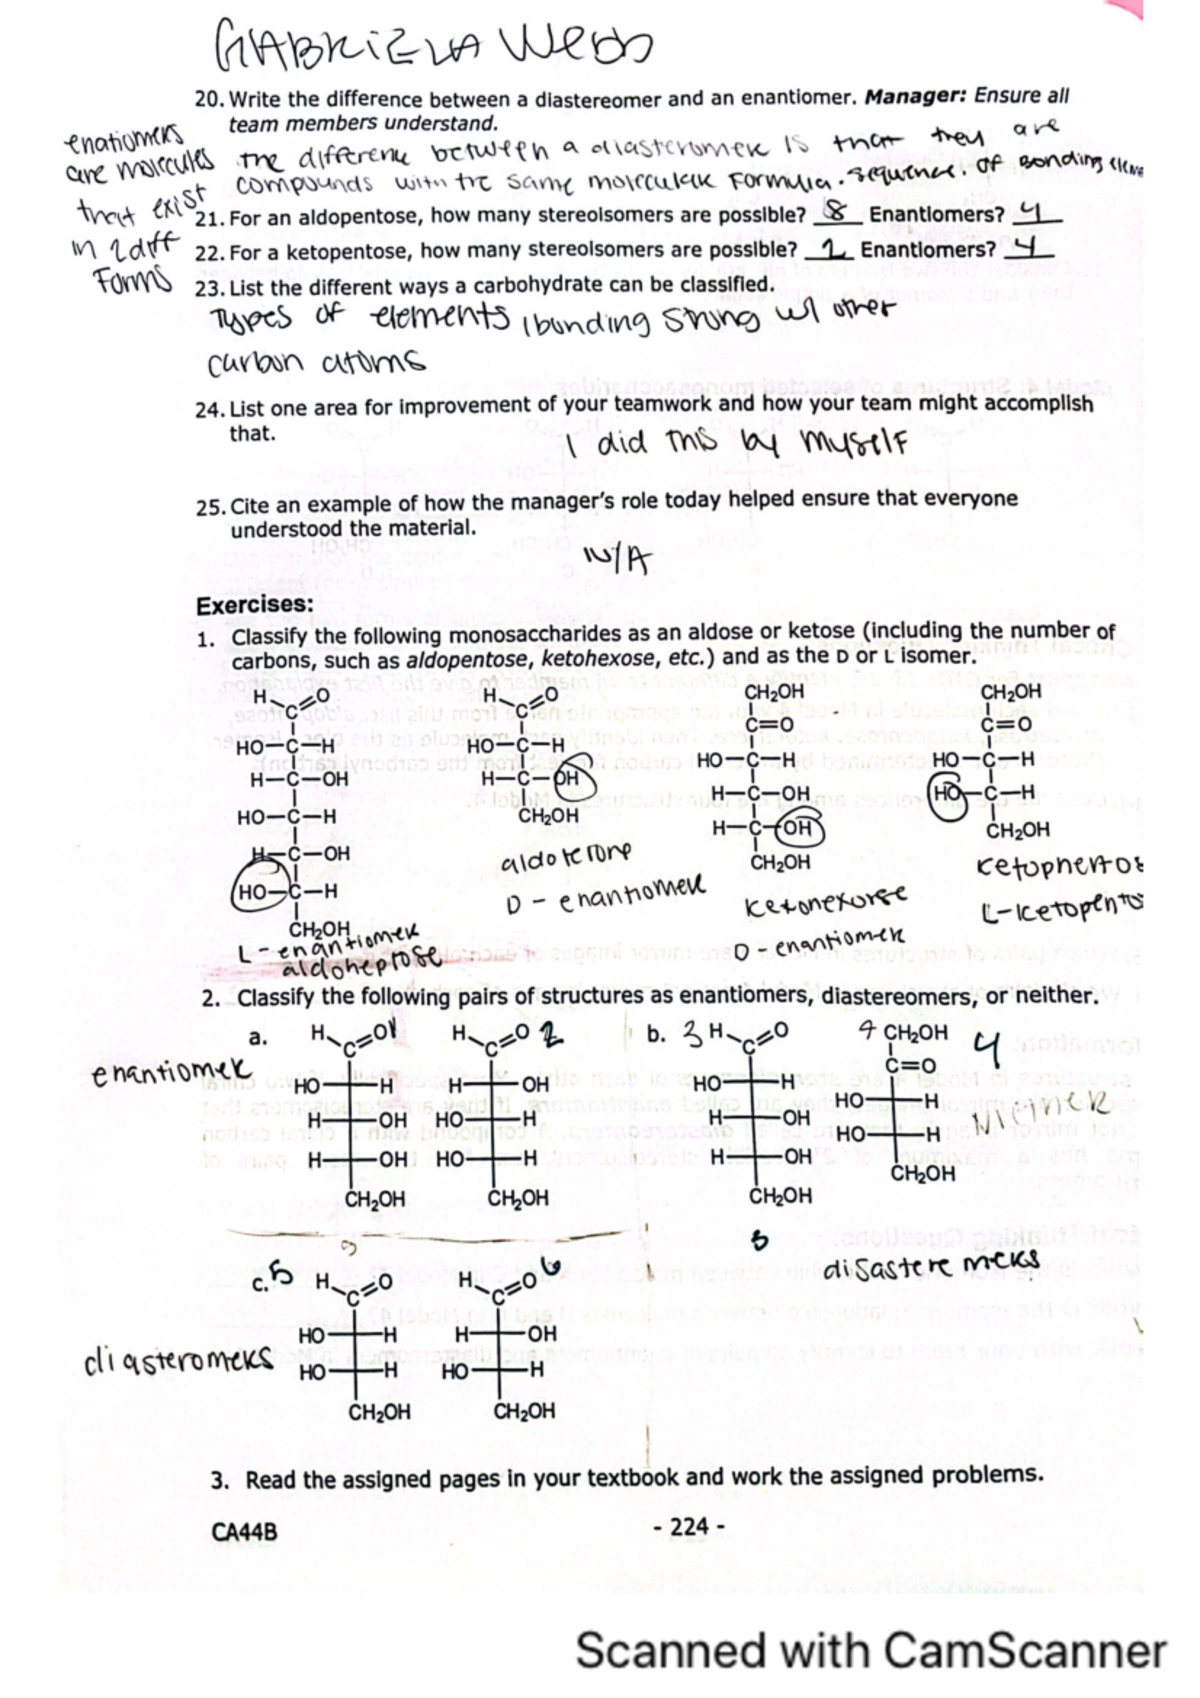 GABRiELA Webb
20. Write the difference between a diastereomer and an enantiomer. Manager: Ensure all
team members understand.
enatiomers
are molecules
that exist
in 2 diff
Forms
the difference between a diasteromer is that they are
compounds with the same molecular Formula. sequence. of Bonding
21. For an aldopentose, how many stereoisomers are possible? 8 Enantiomers? 4
22. For a ketopentose, how many stereoisomers are possible? 2 Enantiomers? 4
23. List the different ways a carbohydrate can be classified.
Types of elements, bonding strong w/ other
carbon atoms
24. List one area for improvement of your teamwork and how your team might accomplish
that.
I did this by myself
25. Cite an example of how the manager's role today helped ensure that everyone
understood the material.
N/A
Exercises:
1. Classify the following monosaccharides as an aldose or ketose (including the number of
carbons, such as aldopentose, ketohexose, etc.) and as the D or L isomer.
H O H O CH₂OH CH₂OH
C C C=O C=O
HO-C-H HO-C-H HO-C-H HO-C-H
H-C-OH H-C-OH H-C-OH HO-C-H
HO-C-H CH₂OH H-C-OH CH₂OH
H-C-OH CH₂OH
HO-C-H
CH₂OH
L-enantiomer
aldoheptose
D-enantiomer
D-enantiomer
2. Classify the following pairs of structures as enantiomers, diastereomers, or neither.
a. H O 1 H O 2 b. 3 H O 4 CH₂OH 4
C C C C=O
enantiomer
HO H H OH HO H HO H
H OH HO H H OH HO H
H OH HO H H OH CH₂OH
CH₂OH CH₂OH CH₂OH
disasteremers
c. 5 H O H O 6
C C
HO H H OH
diasteromers
HO H HO H
CH₂OH CH₂OH
3. Read the assigned pages in your textbook and work the assigned problems.
CA44B - 224 -
Scanned with CamScanner